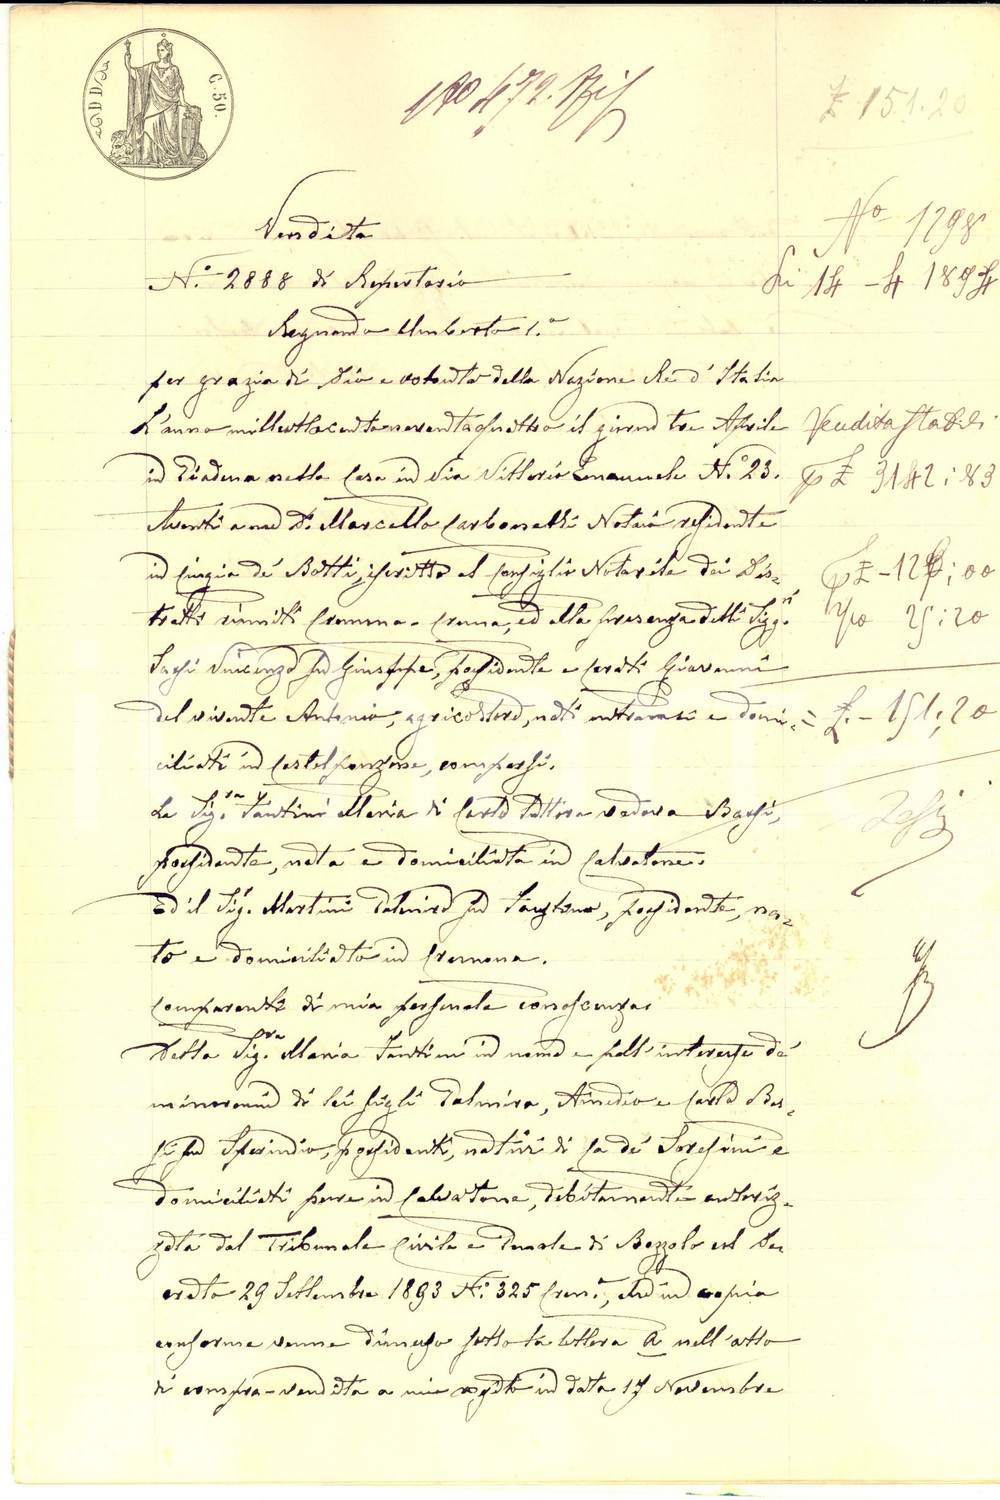 C. 50.
£ 151.20
Vendita
N.° 2888 di Repertorio
Regnando Umberto 1.°
per grazia di Dio e volontà della Nazione Re d'Italia
L'anno milleottocentonovantaquattro il giorno tre Aprile
in Piadena nella Casa in Via Vittorio Emanuele N.° 23.
Avanti a me D.r Marcello Carbonelli Notaio residente
in Cingia de' Botti, iscritto al Consiglio Notarile dei Dis-
tretti riuniti Cremona-Crema, ed alla presenza delli Sigg.ri
Vincenzo fu Giuseppe, possidente e Cerati Giovanni
del vivente Antonio, agricoltore, nati entrambi e domi-
ciliati in Castelponzone, comparsi.
La Sig.ra Fantini Maria di Carlo vedova Bassi,
possidente, nata e domiciliata in Calvatone.
Ed il Sig.r Martini Palmiro fu Faustino, possidente, na-
to e domiciliato in Cremona.
Comparenti di mia personale conoscenza.
Detta Sig.ra Maria Fantini in nome e nell'interesse de'
minorenni di lei figli Palmira, Amedeo e Carlo Bas-
si fu Sperindio, possidenti, nativi di Ca de' Soresini e
domiciliati pure in Calvatone, debitamente autoriz-
zata dal Tribunale Civile e Penale di Bozzolo col De-
creto 29 Settembre 1893 N.° 325 Cron.°, che in copia
conforme venne dimesso sotto la lettera A nell'atto
di compra-vendita a mio rogito in data 17 Novembre
N° 1298
li 14 - 4 1894
Vendita Stabili
£ 3142:83
£ - 126:00
25:20
= £. - 151:20